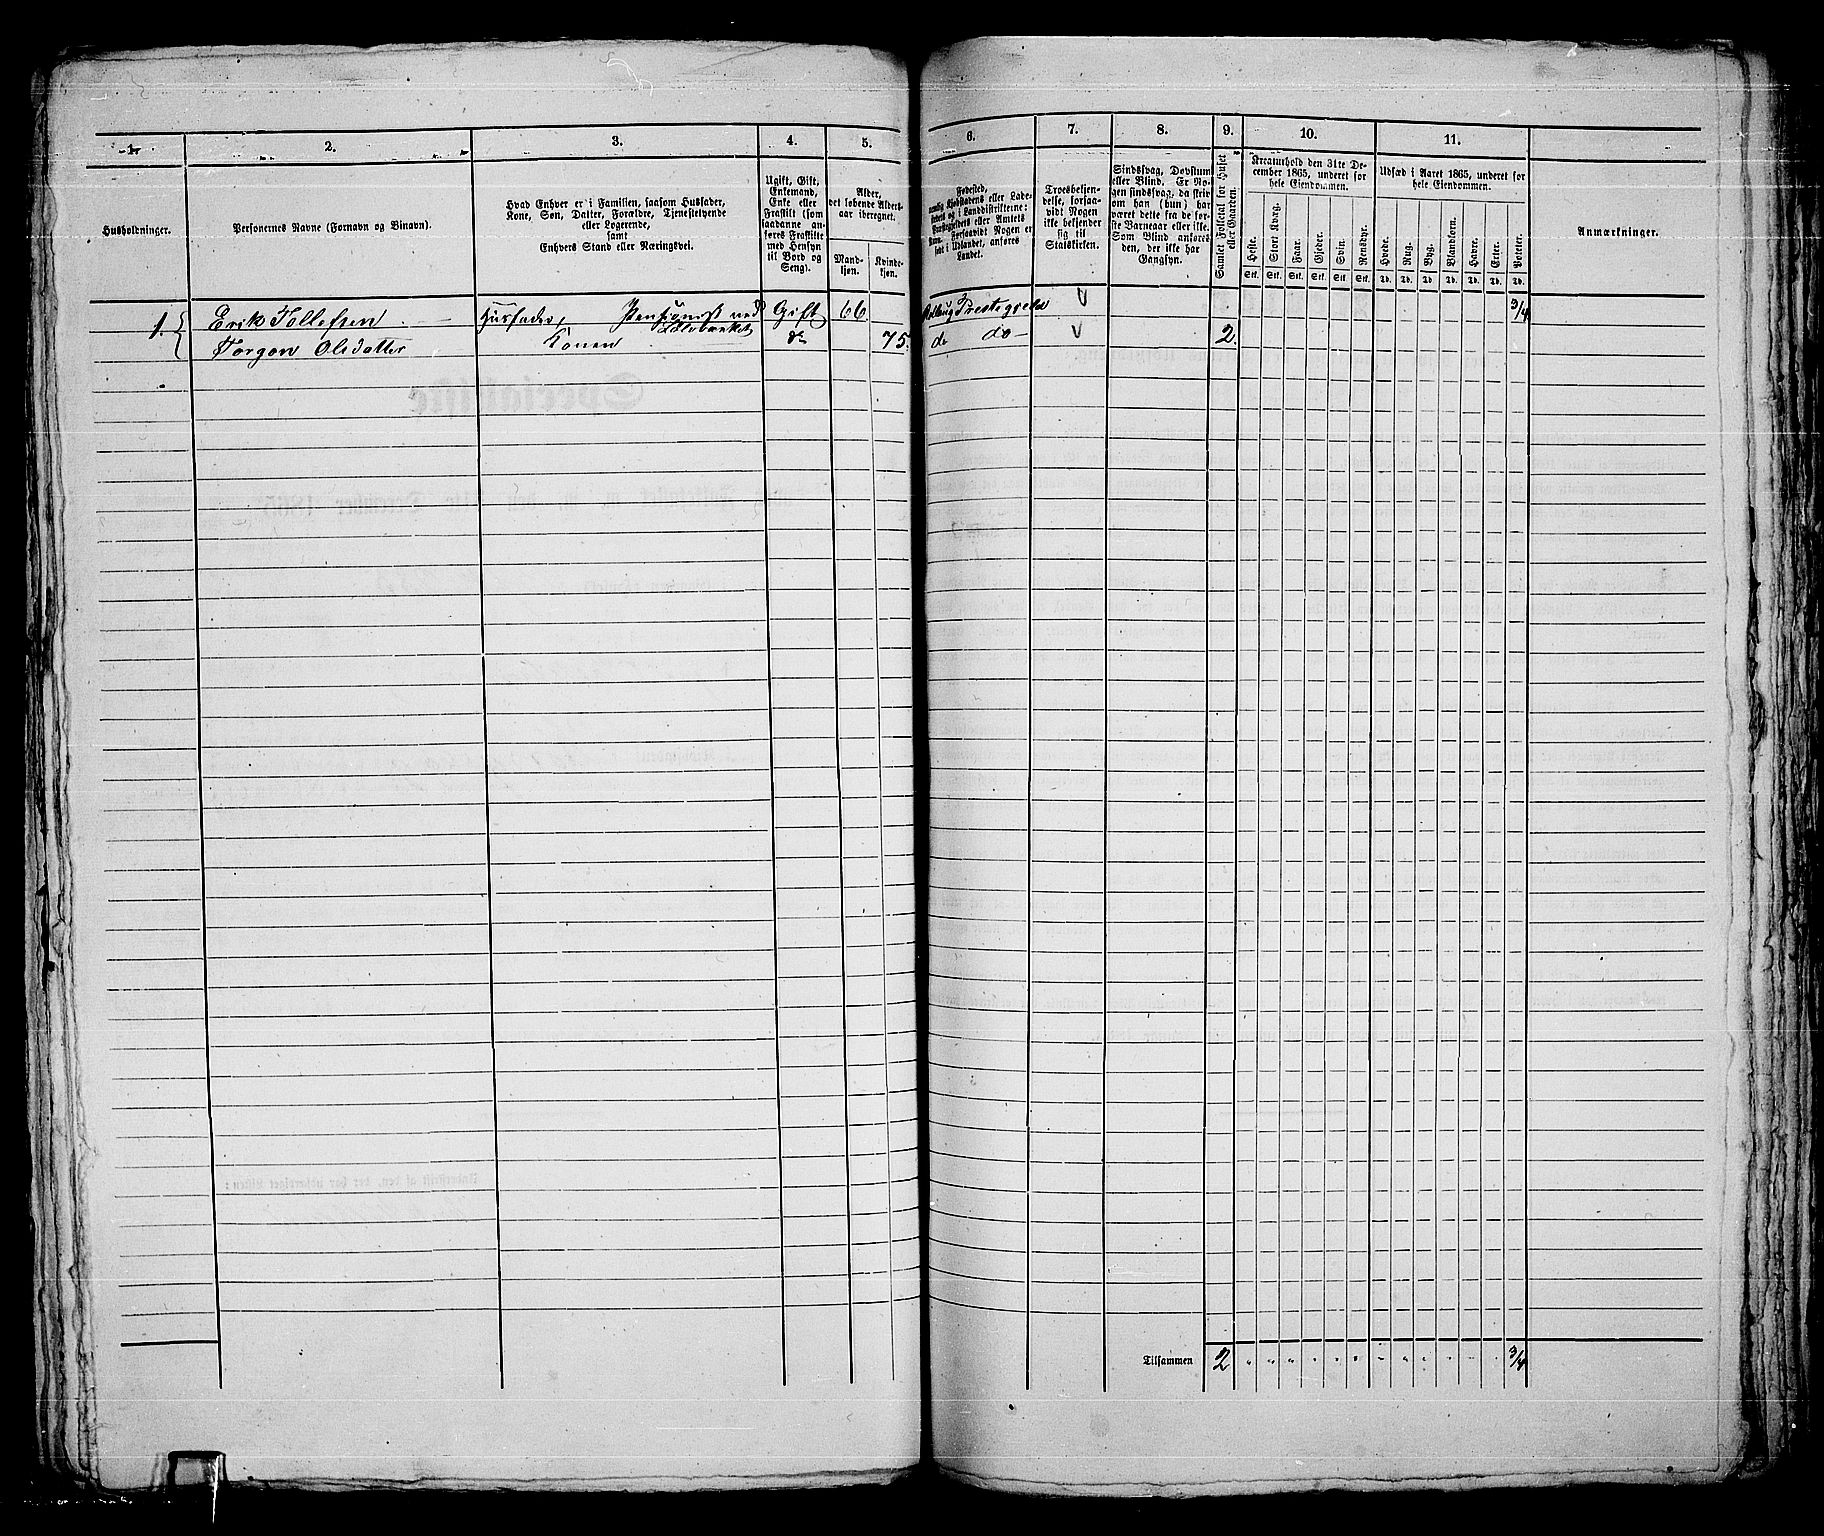 1. 2. 3. 4. 5. 6. 7. 8. 9. 10. 11.
Husholdninger.
Personernes Navne (Fornavn og Binavn).
Hvad Enhver er i Familien, saasom Husfader,
Kone, Søn, Datter, Forældre, Tjenestetyende
eller Logerende,
samt
Enhvers Stand eller Næringsvei.
Ugift, Gift,
Enkemand,
Enke eller
Fraskilt (som
saadanne an-
føres Fraskilte
med Hensyn
til Bord og
Seng).
Alder,
det løbende Alders-
aar iberegnet.
Mand-
kjøn.
Kvinde-
kjøn.
Fødested,
nemlig Kjøbstadens eller Lade-
stedets og i Landdistrikterne:
Præstegjeldets eller Amtets
Navn. Forsaavidt Nogen er
født i Udlandet, anføres
Landet.
Troesbekjen-
delse, forsaa-
vidt Nogen
ikke bekjender
sig til
Statskirken.
Sindssvag, Døvstum
eller Blind. Er No-
gen sindssvag, da skriv
om han (hun) har
været dette fra de før-
ste Barneaar eller ikke.
Som Blind anføres
den, der ikke har
Gangsyn.
Samlet Folketal for Huset
eller Gaarden.
Kreaturhold den 31te De-
cember 1865, underet for
hele Eiendommen.
Heste. Stort Kvæg. Faar. Gjeder. Svin. Rensdyr.
Stk. Stk. Stk. Stk. Stk. Stk.
Udsæd i Aaret 1865, underet for
hele Eiendommen.
Hvede. Rug. Byg. Blandkorn. Havre. Erter. Poteter.
Td. Td. Td. Td. Td. Td. Td.
Anmærkninger.
1. Erik Tollefsen Husfader, Pensionist ved Gift 66 Rollaug Prestegjeld V 3/4
Sølvværket
Torgon Olsdatter Konen do 75. do do V 2.
Tilsammen 2 " " " " " " " " " " " " 3/4